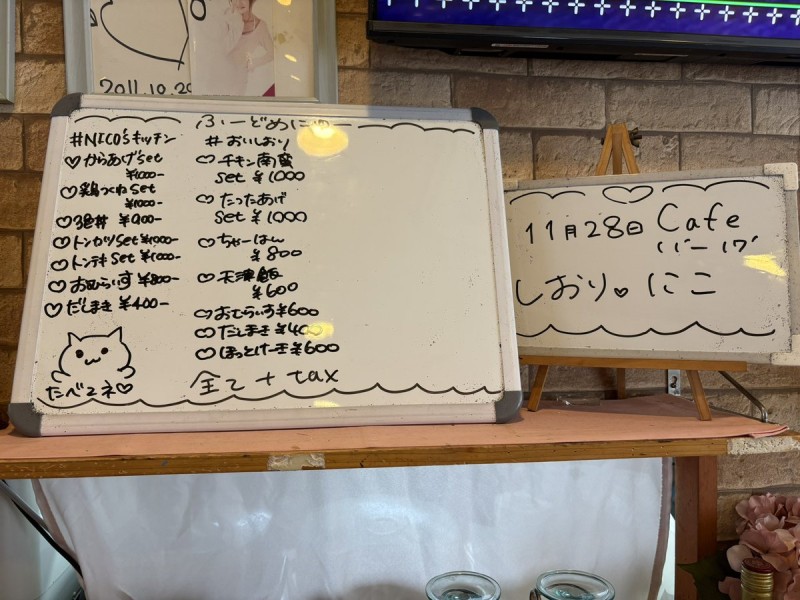 2011.10.29
ふーどめにゅー
#NICO'sキッチン
♡からあげset
¥1000-
♡鶏つくねset
¥1000-
¥900-
♡トンカツset ¥1000-
♡トンテキ set ¥1000-
♡おむらいす ¥800-
♡だしまき ¥400-
たべてネ♡
#おいしおり
♡チキン南蛮
set ¥1000
♡たったあげ
set ¥1000
♡ちゃーはん
¥800
♡天津飯
¥600
♡おむらいす¥600
♡だしまき ¥400
♡ほっとけーき¥600
全て + tax
11月28日 Cafe
しおり♡にこ